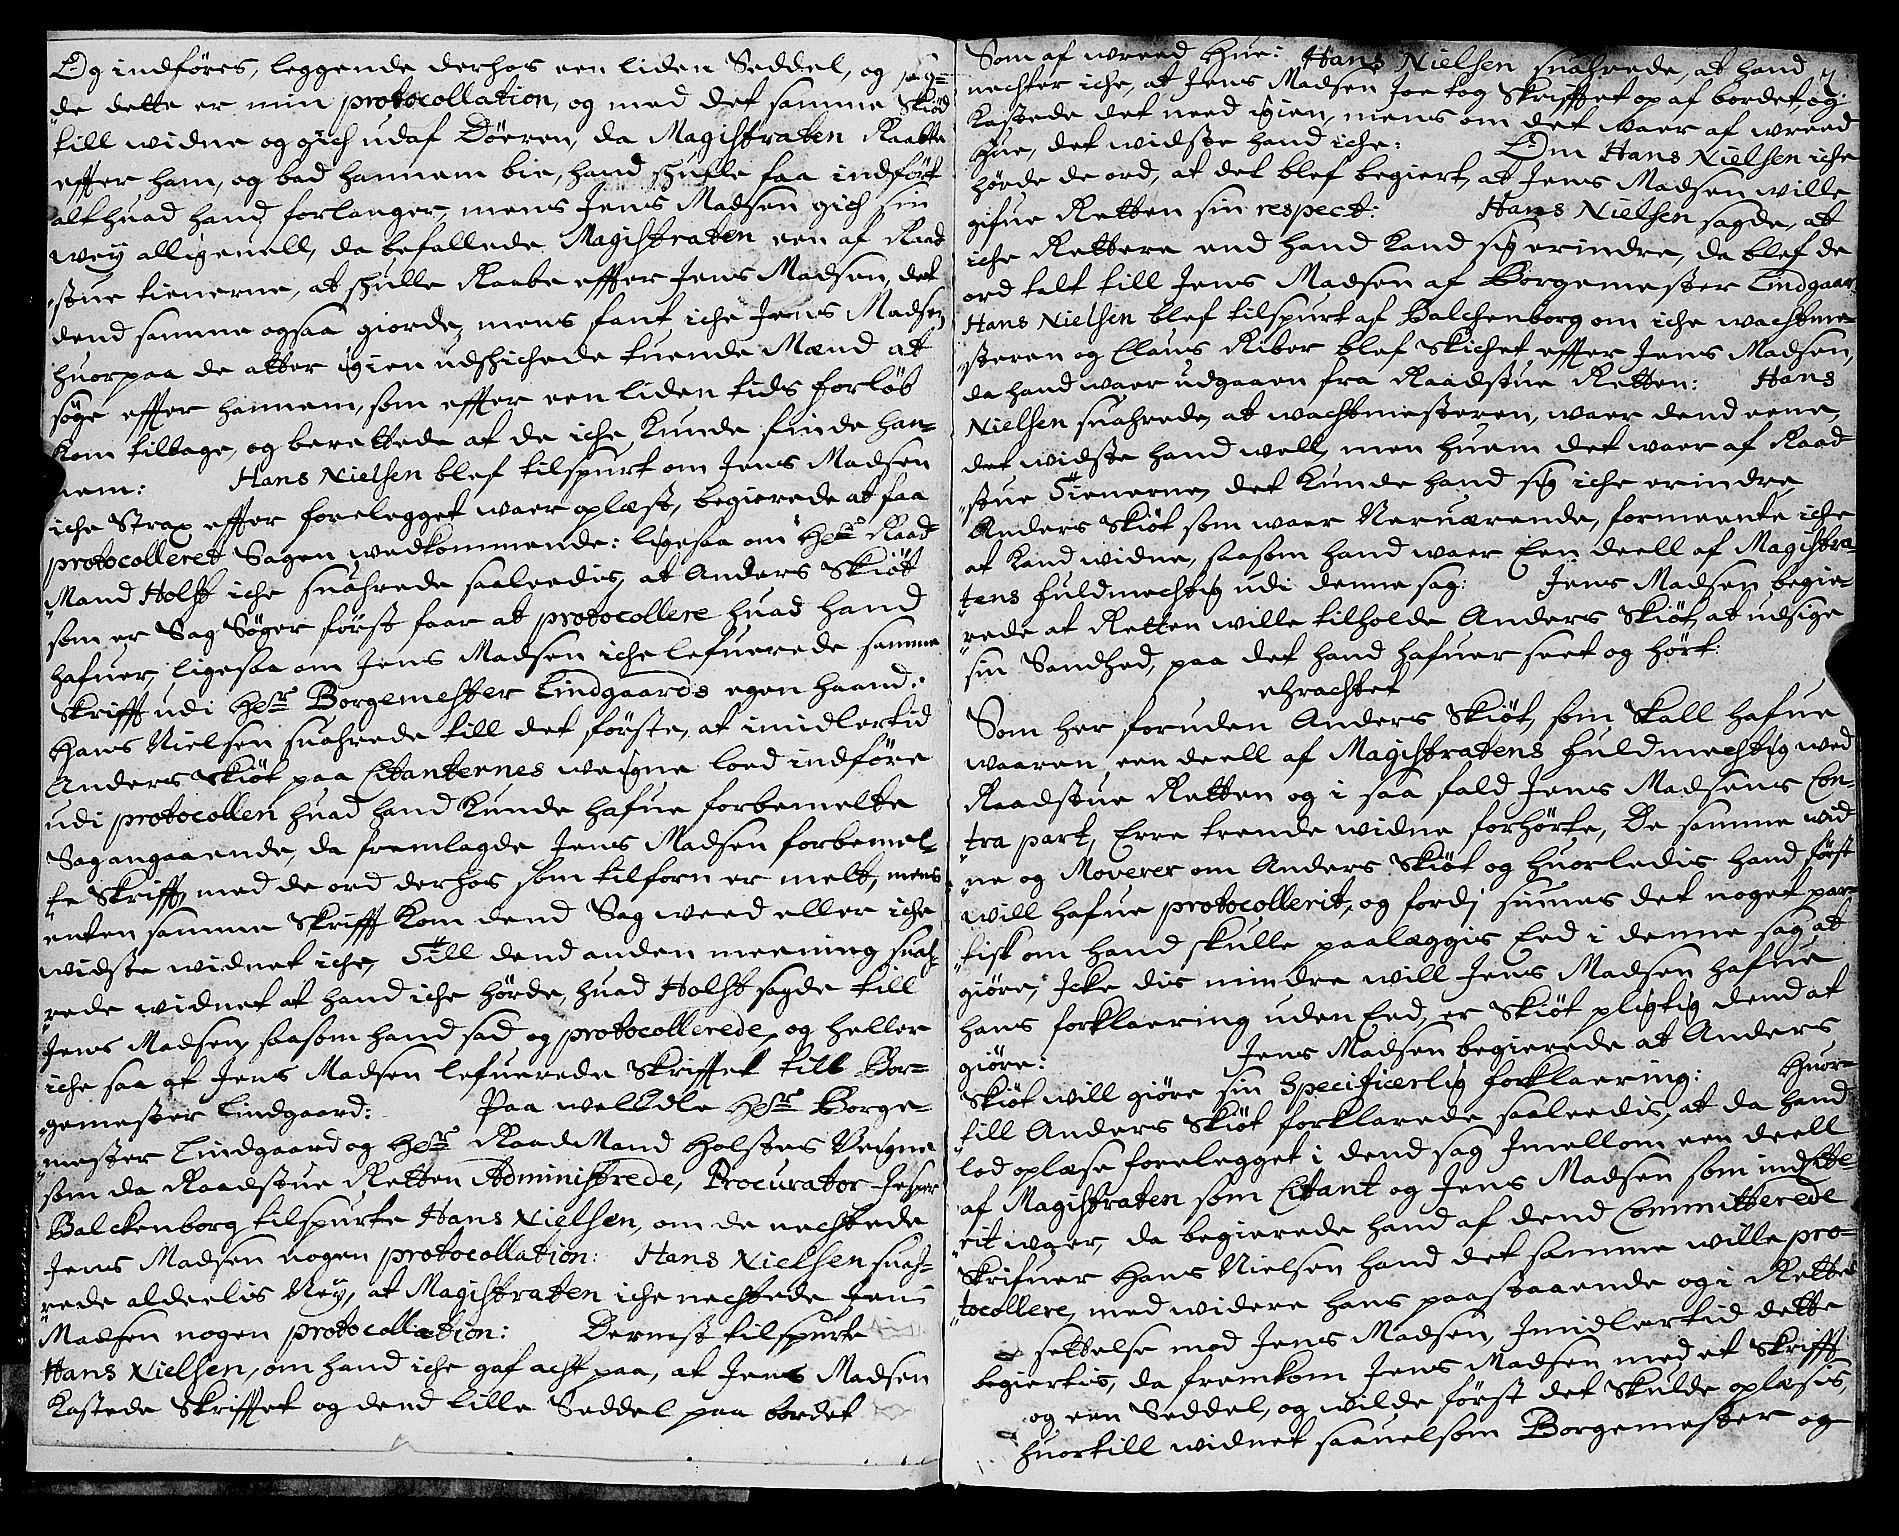 Og indföres, leggende derhos een liden Seddel, og sag-
de dette er min protocollation, og med det samme skiöd
till widne og gich udaf Döeren, da Magistraten Raabte
effter ham, og bad hannem bie, hand skulle faa indfört
alt huad hand forlanger, mens Jens Madsen gich sin
wey alligeuell, da befallede Magistraten een af Raad
stue tienerne, at skulle Raabe effter Jens Madsen, det
dend samme ogsaa giorde, mens fant iche Jens Madsen
huorpaa de atter igien udskichede tuende Mænd at
söge effter hannem, som effter een liden tids forlöb
Kom tilbage, og berettede at de iche Kunde finde han-
nem: Hans Nielsen blef tilspurt om Jens Madsen
iche Strax effter forelegget waer oplæst, begierede at faa
protocolleret Sagen wedkommende: ligesaa om Hr Raad
Mand Holst iche suahrede saaleedis, at Anders Skiöt
som er Sag Söger först faar at protocollere huad hand
hafuer, ligesaa om Jens Madsen iche lefuerede samme
Skrifft udi Hr Borgemester Lindgaards egen haand:
Hans Nielsen suahrede till det förste, at imidlertid
Anders Skiöt paa Citanternes weigne loed indföre
udi protocollen huad hand Kunde hafue forbemelte
Sag angaaende, da fremlagde Jens Madsen forbemel-
te Skrifft, med de ord derhos som tilforn er melt, mens
enten samme Skrifft Kom dend Sag weed eller iche
widste widnet iche, Till dend anden meening suah-
rede widnet at hand iche hörde, huad Holst sagde till
Jens Madsen, saasom hand sad og protocollerede, og heller
iche saa at Jens Madsen lefuerede Skrifftet till Bor-
gemester Lindgaard: Paa welEdle Hr Borge-
mester Lindgaard og Hr RaadMand Holstes Veigne
som da Raadstue Retten Administrede, Procurator Jesper
Balckenborg tilspurte Hans Nielsen, om de nechtede
Jens Madsen nogen protocollation: Hans Nielsen suah-
rede aldeelis Ney, at Magistraten iche nechtede Jens
Madsen nogen protocollation: Dernest tilspurte
Hans Nielsen, om hand iche gaf acht paa, at Jens Madsen
Kastede Skrifftet og dend lille Seddel paa bordet
Som af wreed Hue: Hans Nielsen suahrede, at hand
nechter iche, at Jens Madsen Joe tog Skrifftet op af bordet, og
Kastede det need igien, mens om det waer af wreed
Hue, det widste hand iche: Om Hans Nielsen iche
hörde de ord, at det blef begiert, at Jens Madsen wille
gifue Retten sin respect: Hans Nielsen sagde, at
iche Rettere end hand Kand sig erindre, da blef de
ord talt till Jens Madsen af Borgemester Lindgaar
Hans Nielsen blef tilspurt af Balchenborg om iche wachtme-
steren og Claus Riber blef Skichet effter Jens Madsen,
da hand waer udgaaen fra Raadstue Retten: Hans
Nielsen suahrede, at wachtmesteren, waer dend eene,
det widste hand well, men huem det waer af Raad
stue Tienerne, det Kunde hand sig iche erindre,
Anders Skiöt som waer Neruærende, formeente iche
at Kand widne, saasom hand waer Een deell af Magistra-
tens fuldmechtig udi denne sag: Jens Madsen begie-
rede at Retten wille tilholde Anders Skiöt, at udsige
sin Sandhed, paa det hand hafuer seet og hört:
eragtet
Som her foruden Anders Skiöt, som Skall hafue
waaren een deell af Magistratens fuldmechtig wed
Raadstue Retten og i saa fald Jens Madsens Con-
tra part, Erre trende widne forhörte, De samme wid
ne og Moverer om Anders Skiöt og huorledis hand först
will hafue protocollerit, og fordj siunes det noget par-
tisk om hand skulle paalæggis Eed i denne sag at
giöre, Icke dis mindre will Jens Madsen hafue
hans forklaering uden Eed, er Skiöt pligtig dend at
giöre: Jens Madsen begierede at Anders
Skiöt will giöre sin Specificerlig forklaering: Huor-
till Anders Skiöt forklarede saaleedis, at da hand
lod oplæse forelegget i dend sag Jmellom een deell
af Magistraten som Citant og Jens Madsen som indsite-
rit waer, da begierede hand af dend Committerede
Skrifuer Hans Nielsen hand det samme wille pro-
tocollere, med widere hans paastaaende og i Rette
settelse mod Jens Madsen, Jmidlertid dette
begiertis, da fremkom Jens Madsen med et Skrifft
og een Seddel, og wilde först det Skulde oplæsis,
huortill widnet saauelsom Borgemester og